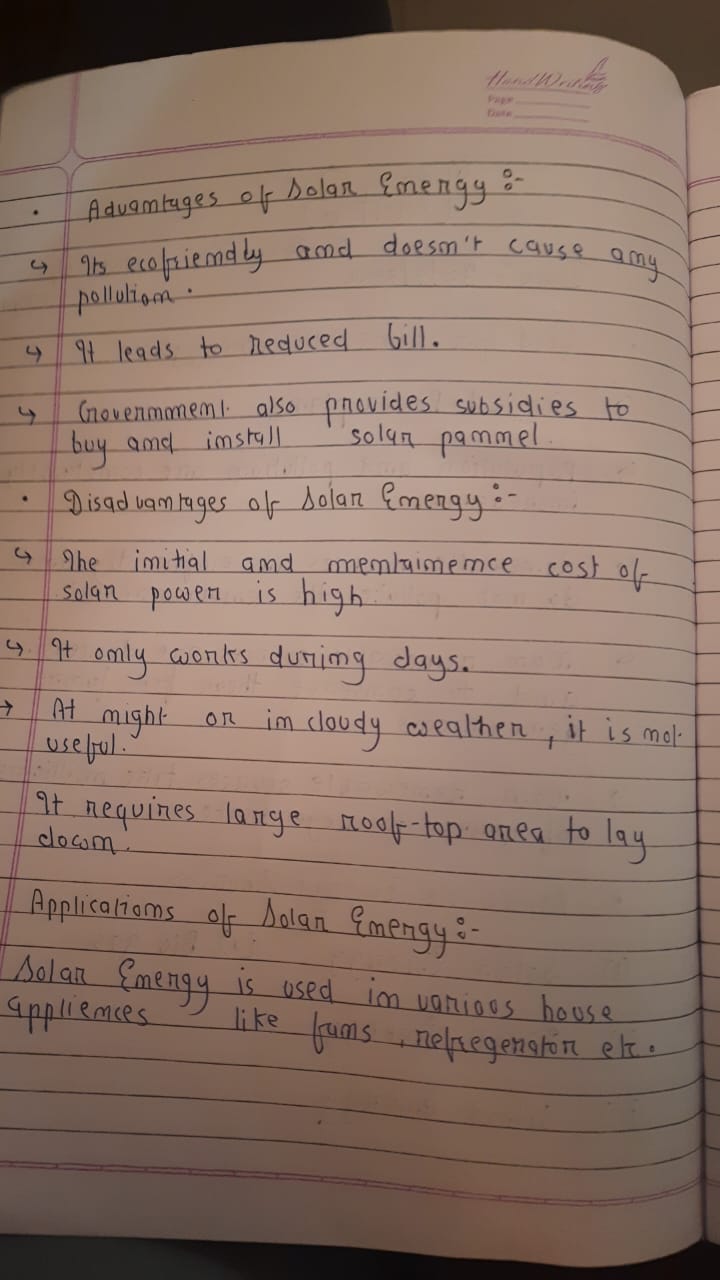 HandWriting
Page
Date
• Advantages of Solar Energy :-
↳ Its ecofriendly and doesn't cause any
pollution.
↳ It leads to reduced bill.
↳ Government also provides subsidies to
buy and install solar pannel.
• Disadvantages of Solar Energy :-
↳ The initial and mentainence cost of
solar power is high.
↳ It only works during days.
→ At night or in cloudy weather, it is not
useful.
It requires large roof-top area to lay
down.
Applications of Solar Energy :-
Solar Energy is used in various house
appliences like fans, refregerator etc.